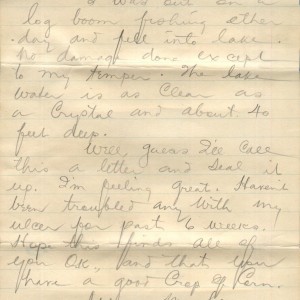 I was out on a
log boom fishing other
day and fell into lake.
No damage done except
to my temper. The lake
water is as Clear as
a Crystal and about 40
feet deep.
Well, guess I'll Call
this a letter and Seal it
up. I'm feeling great. Haven't
been troubled any With my
ulcer for past 6 weeks.
Hope this finds all of
you O.K., and that you
have a good Crop of Corn.